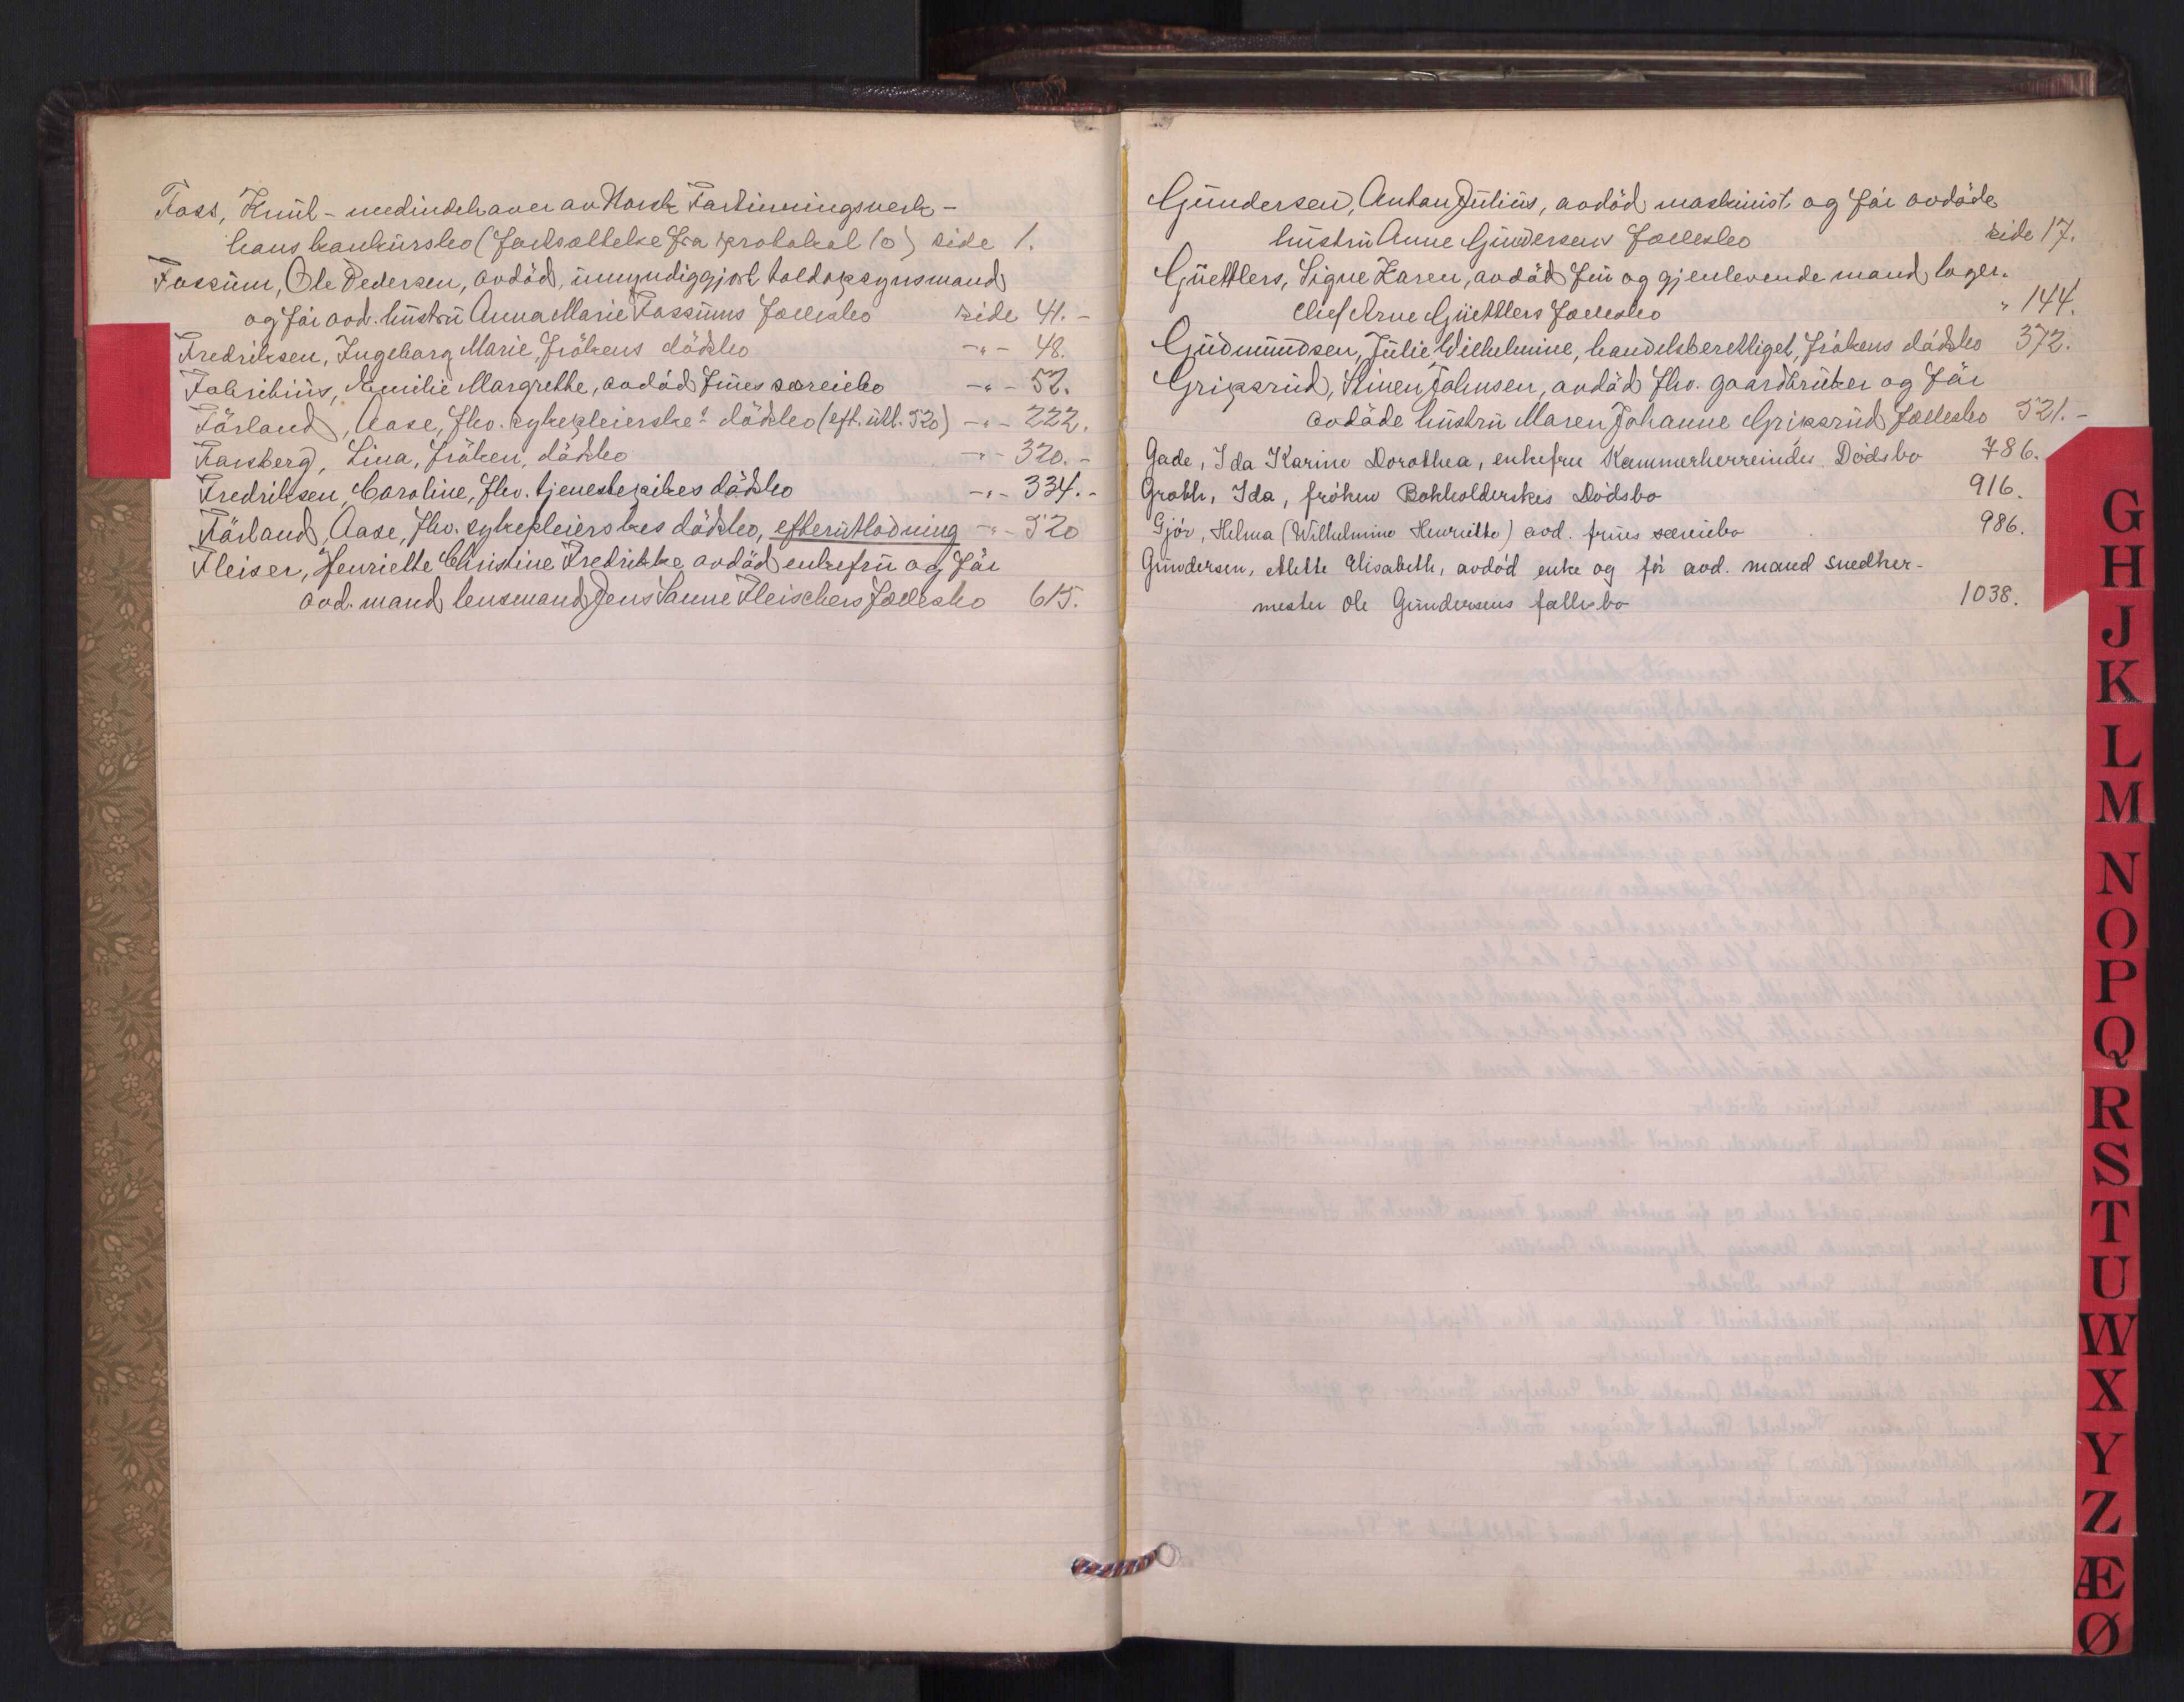 Foss, Knut - medindehaver av Norsk Fortinningsverk -
hans konkursbo (fortsættelse fra protokol 10) side 1.
Fossum, Ole Pedersen, avdød, umyndiggjort toldopsynsmand
og før avd. hustru Anna Marie Fossums fællesbo side 41. -
Fredriksen, Ingeborg Marie, frøkens dødsbo -"- 48.
Fabritius, Emilie Margrethe, avdød frues særeiebo -"- 52.
Førland, Aase, fhv. sykepleierske s dødsbo (eft. utl. 520) -"- 222.
Forsberg, Lina, frøken, dødsbo -"- 320. -
Fredriksen, Caroline, fhv. tjenestepikes dødsbo -"- 334. -
Førland, Aase, fhv. sykepleierskes dødsbo, efterutlodning -"- 520
Fleiser, Henriette Christine Fredrikke, avdød enkefru og før
avd. mand lensmand Jens Sanne Fleischers fællesbo 615.
Gundersen, Anton Julius, avdød maskinist og før avdøde
hustru Anne Gundersens fællesbo side 17.
Guettlers, Signe Karen, avdød fru og gjenlevende mand, lager-
chef Arne Guettlers fællesbo " 144.
Gudmundsen, Julie Wilhelmine, handelsberettiget, frøkens dødsbo 372.
Gripsrud, Simen Johnsen, avdød fhv. gaardbruker og før
avdøde hustru Maren Johanne Gripsrud fællesbo 521. -
Gade, Ida Karine Dorothea, enkefru Kammerherreindes Dødsbo 786.
Groth, Ida, frøken Bokholderskes Dødsbo 916.
Gjør, Helma (Wilhelmine Henriette) avd. frues særeiebo 986.
Gundersen, Mette Elisabeth, avdød enke og før avd. mand snedker-
mester Ole Gundersens fællesbo 1038.
G
H
J
K
L
M
N
O
P
Q
R
S
T
U
W
X
Y
Z
Æ
Ø